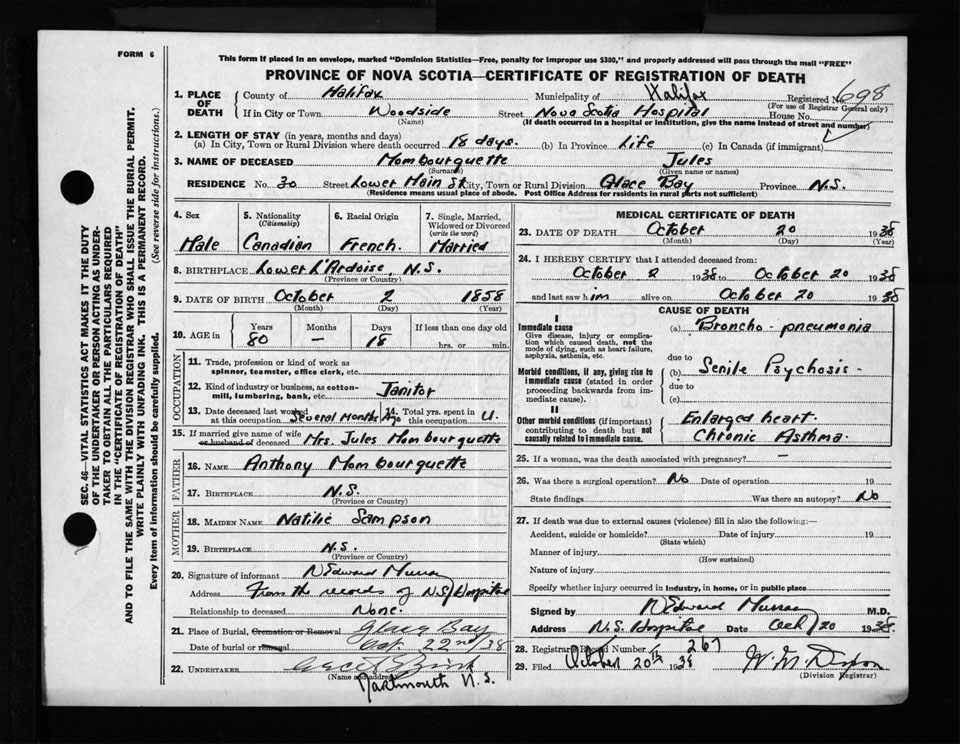 FORM 6
This form if placed in an envelope, marked "Dominion Statistics—Free, penalty for improper use $300," and properly addressed will pass through the mail "FREE"
PROVINCE OF NOVA SCOTIA—CERTIFICATE OF REGISTRATION OF DEATH
1. PLACE OF DEATH
County of Halifax Municipality of Halifax Registered No. 698
(For use of Registrar General only)
If in City or Town Woodside Street Nova Scotia Hospital House No.
(Name) (If death occurred in a hospital or institution, give the name instead of street and number)
2. LENGTH OF STAY (in years, months and days)
(a) In City, Town or Rural Division where death occurred 18 days. (b) In Province Life (c) In Canada (if immigrant)
3. NAME OF DECEASED Mombourquette Jules
(Surname) (Given name or names)
RESIDENCE No. 30 Street Lower Main St. City, Town or Rural Division Glace Bay Province N.S.
(Residence means usual place of abode. Post Office Address for residents in rural parts not sufficient)
4. Sex
Male
5. Nationality
(Citizenship)
Canadian
6. Racial Origin
French.
7. Single, Married, Widowed or Divorced
(write the word)
Married
8. BIRTHPLACE Lower L'Ardoise, N.S.
(Province or Country)
9. DATE OF BIRTH October 2 1858
(Month) (Day) (Year)
10. AGE in
Years Months Days If less than one day old
80 — 18 hrs. or min.
OCCUPATION
11. Trade, profession or kind of work as spinner, teamster, office clerk, etc.
12. Kind of industry or business, as cotton-mill, lumbering, bank, etc. Janitor
13. Date deceased last worked at this occupation Several Months Ago
14. Total yrs. spent in this occupation U.
15. If married give name of wife or husband of deceased Mrs. Jules Mombourquette
FATHER
16. NAME Anthony Mombourquette
17. BIRTHPLACE N.S.
(Province or Country)
MOTHER
18. MAIDEN NAME Natilie Sampson
19. BIRTHPLACE N.S.
(Province or Country)
20. Signature of informant N Edward Murray
Address From the records of N.S. Hospital
Relationship to deceased None.
21. Place of Burial, Cremation or Removal Glace Bay
Date of burial or removal Oct. 22nd/38
22. UNDERTAKER
(Name and address)
Dartmouth N.S.
MEDICAL CERTIFICATE OF DEATH
23. DATE OF DEATH October 20 1938
(Month) (Day) (Year)
24. I HEREBY CERTIFY that I attended deceased from:
October 2 1938 to October 20 1938
and last saw him alive on October 20 1938
CAUSE OF DEATH
I
Immediate cause
Give disease, injury or complication which caused death, not the mode of dying, such as heart failure, asphyxia, asthenia, etc.
(a) Broncho-pneumonia
due to
Morbid conditions, if any, giving rise to immediate cause (stated in order proceeding backwards from immediate cause).
(b) Senile Psychosis-
due to
(c)
II
Other morbid conditions (if important) contributing to death but not causally related to immediate cause.
Enlarged heart.
Chronic Asthma.
25. If a woman, was the death associated with pregnancy? —
26. Was there a surgical operation? No Date of operation 19
State findings Was there an autopsy? No
27. If death was due to external causes (violence) fill in also the following:—
Accident, suicide or homicide? Date of injury 19
(State which)
Manner of injury
(How sustained)
Nature of injury
Specify whether injury occurred in industry, in home, or in public place
Signed by N Edward Murray M.D.
Address N.S. Hospital Date Oct/20 1938.
28. Registrar's Record Number 267
29. Filed October 20th 1938
(Division Registrar)
SEC. 46—VITAL STATISTICS ACT MAKES IT THE DUTY OF THE UNDERTAKER OR PERSON ACTING AS UNDERTAKER TO OBTAIN ALL THE PARTICULARS REQUIRED IN THE "CERTIFICATE OF REGISTRATION OF DEATH" AND TO FILE THE SAME WITH THE DIVISION REGISTRAR WHO SHALL ISSUE THE BURIAL PERMIT.
WRITE PLAINLY WITH UNFADING INK. THIS IS A PERMANENT RECORD.
Every item of information should be carefully supplied. (See reverse side for instructions.)